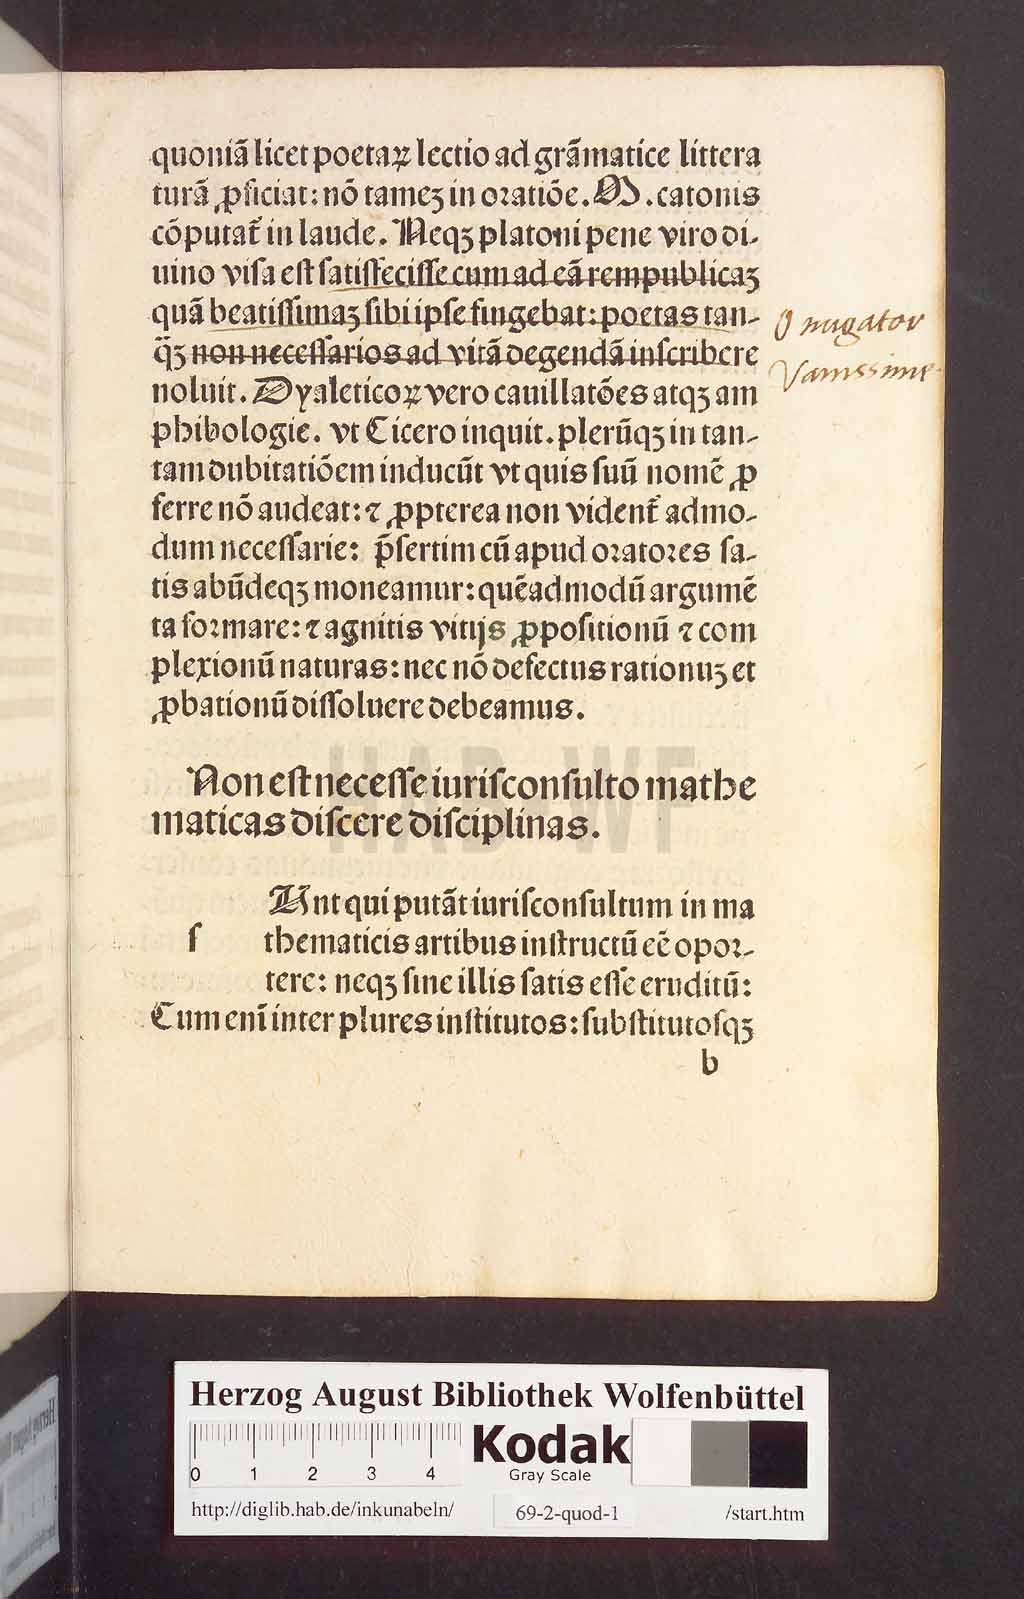 quoniã licet poetaꝝ lectio ad grãmatice littera
turã ꝓficiat: nõ tameꝫ in oꝛatiõe. M. catonis
cõputat̃ in laude. Neqꝫ platoni pene viro di-
uino visa est satisfecisse cum ad eã rempublicaꝫ
quã beatissimaꝫ sibi ipse fingebat: poetas tan-
q̃ꝫ non necessarios ad vitã degendã inscribere
noluit. Dyaleticoꝝ vero cauillatões atqꝫ am
phibologie. vt Cicero inquit. plerũqꝫ in tan-
tam dubitatiõem inducũt vt quis suũ nomẽ ꝓ
ferre nõ audeat: ⁊ ꝓpterea non vident̃ admo-
dum necessarie: p̃sertim cũ apud oꝛatoꝛes sa-
tis abũdeqꝫ moneamur: quẽadmodũ argumẽ
ta foꝛmare: ⁊ agnitis vitijs ꝓpositionũ ⁊ com
plexionũ naturas: nec nõ defectus rationuꝫ et
ꝓbationũ dissoluere debeamus.
Non est necesse iurisconsulto mathe
maticas discere disciplinas.
Unt qui putãt iurisconsultum in ma
s thematicis artibus instructũ eẽ opoꝛ-
tere: neqꝫ sine illis satis esse eruditũ:
Cum enĩ inter plures institutos: substitutosqꝫ
b
O nugator
Vanissime
HAB WF
Herzog August Bibliothek Wolfenbüttel
0 1 2 3 4
Kodak
Gray Scale
http://diglib.hab.de/inkunabeln/ 69-2-quod-1 /start.htm